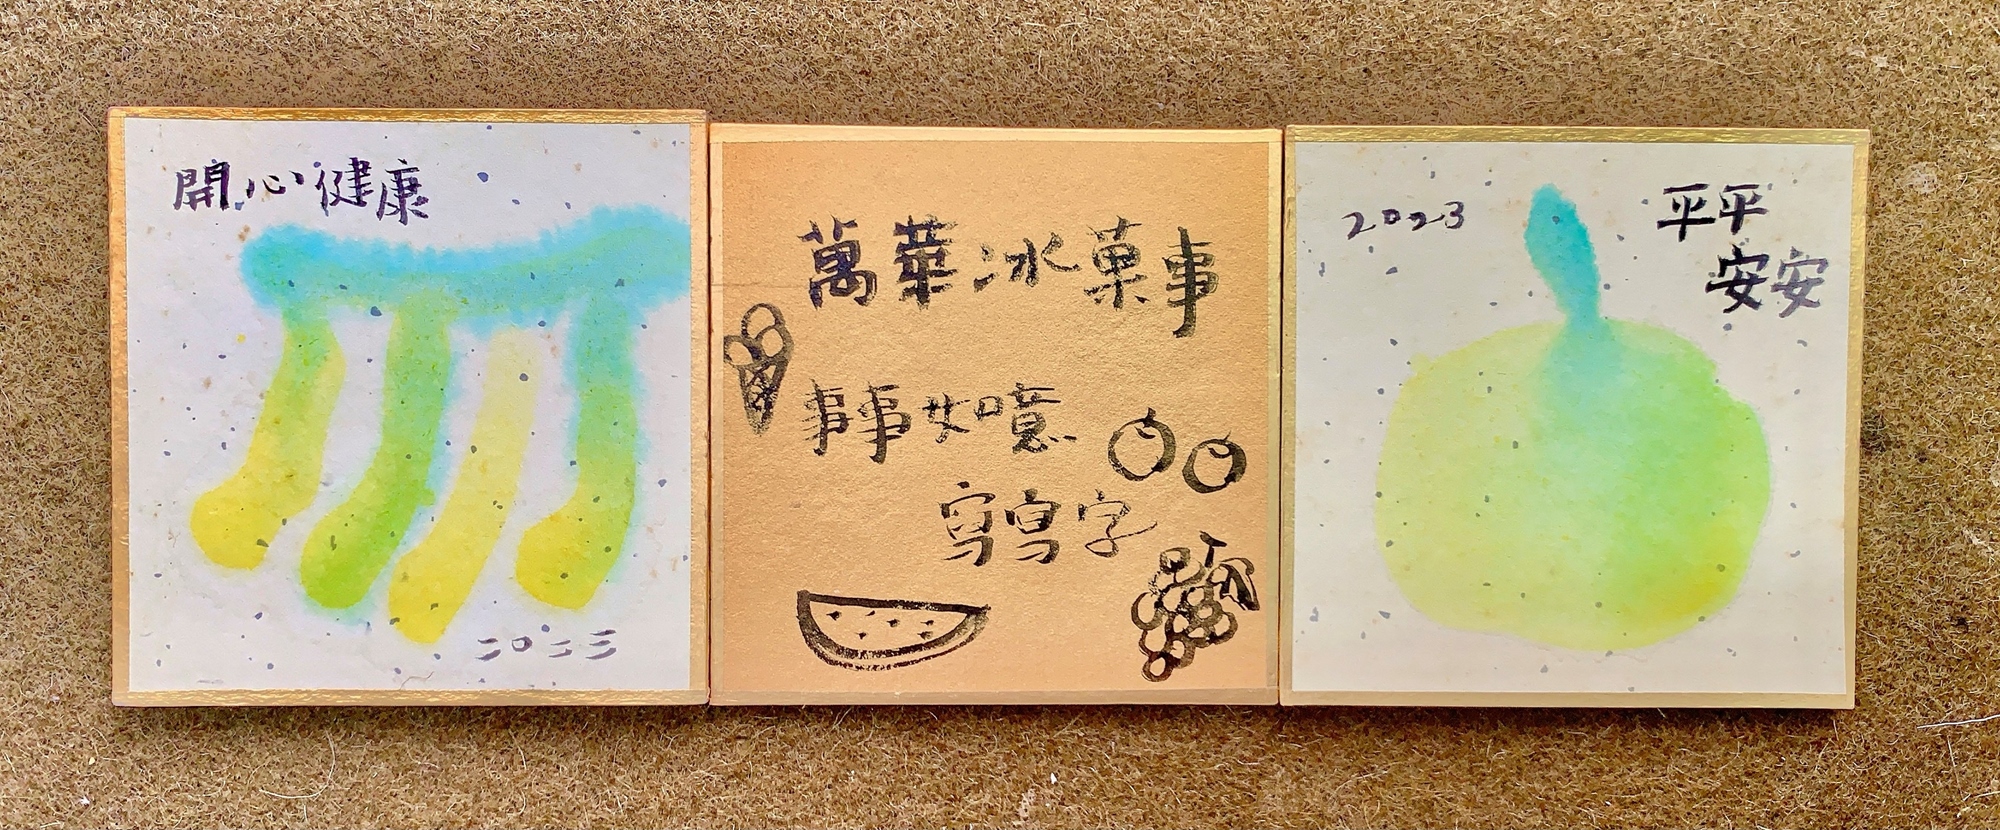 開心健康
二〇二三
萬華冰菓事
事事如意
寫寫字
2023
平平
安安